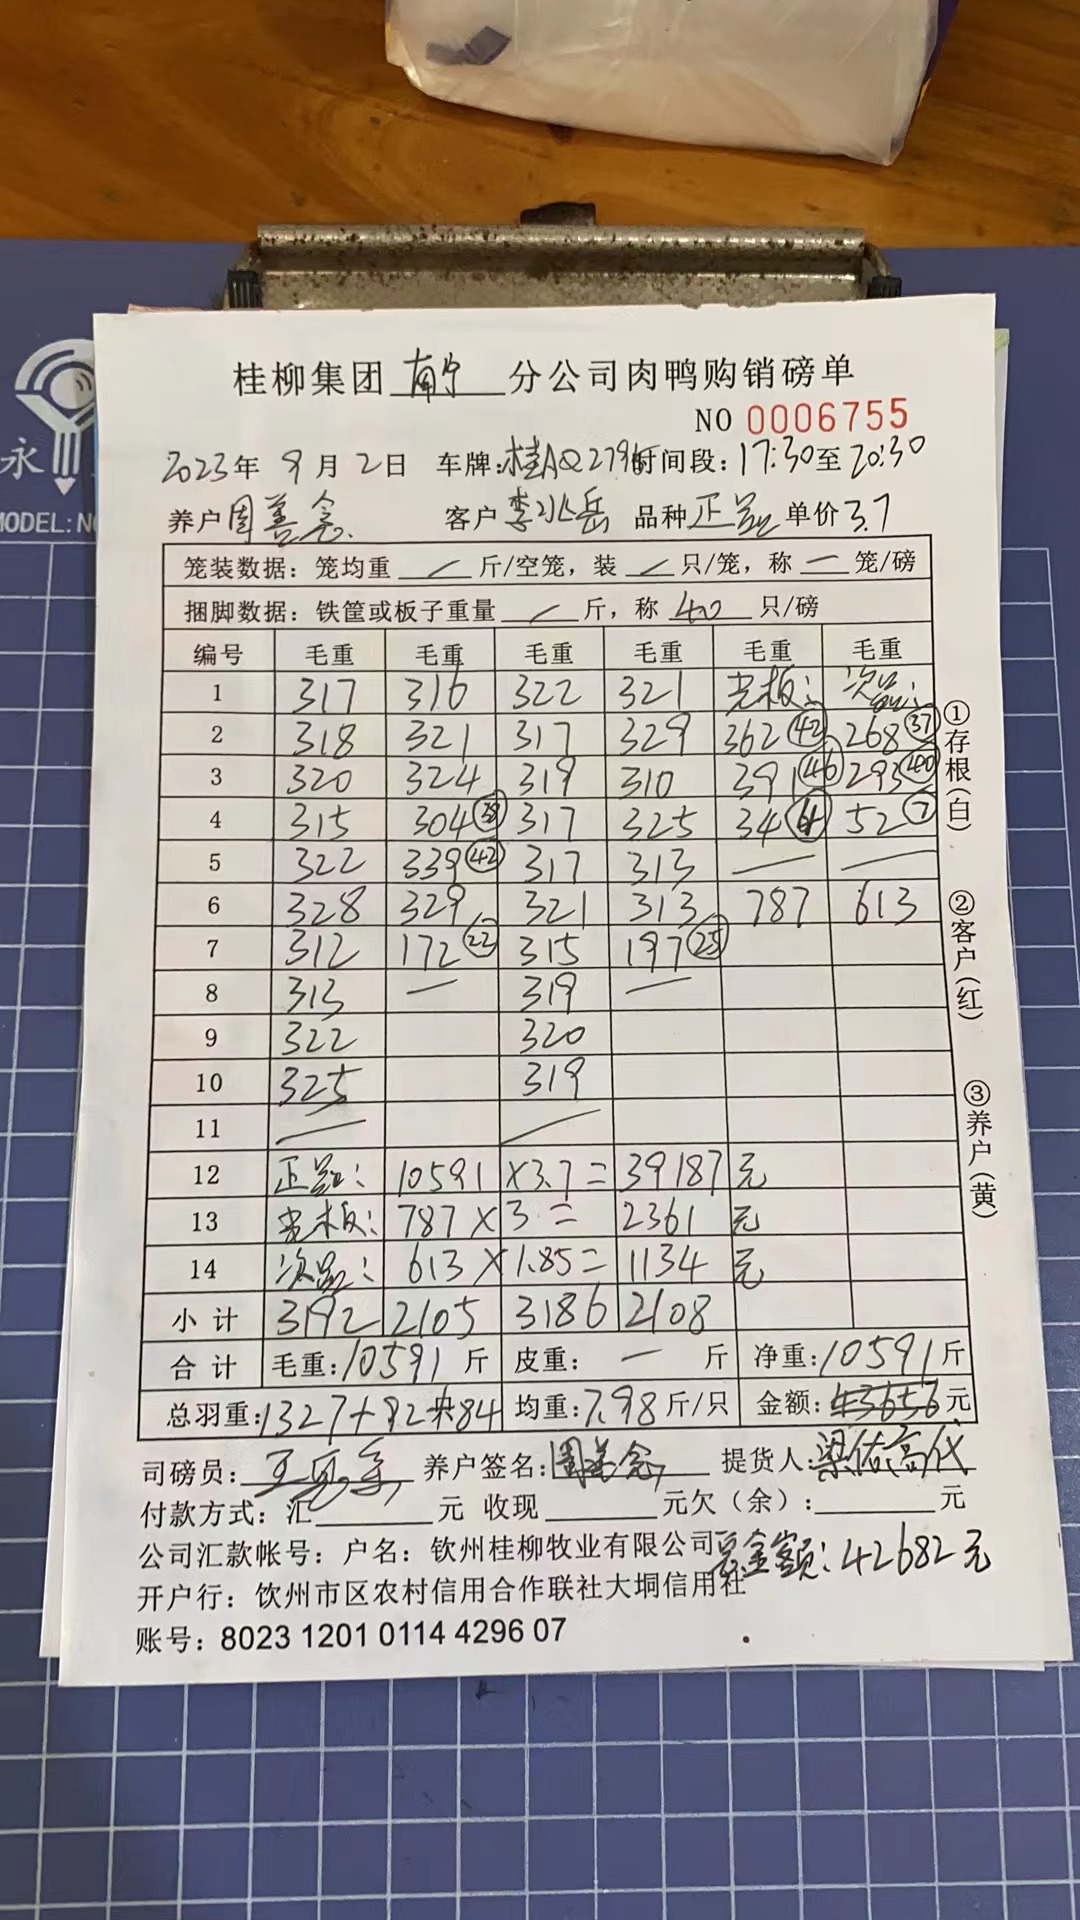 永
MODEL:N
桂柳集团 南宁 分公司肉鸭购销磅单
NO 0006755
2023年 9月2日 车牌:桂AQ279 时间段:17:30至20:30
养户 周善念 客户 李 岳 品种 正品 单价 3.7
笼装数据:笼均重 / 斤/空笼,装 / 只/笼,称 — 笼/磅
捆脚数据:铁筐或板子重量 / 斤,称 40 只/磅
编号 毛重 毛重 毛重 毛重 毛重 毛重
1 317 316 322 321 光板: 次品:
2 318 321 317 329 362 (42) 268 (37)
3 320 324 319 310 391 (46) 293 (40)
4 315 304 (38) 317 325 34 (4) 52 (7)
5 322 339 (42) 317 313 — —
6 328 329 321 313 787 613
7 312 172 (22) 315 197 (25)
8 313 — 319 —
9 322 320
10 325 319
11 — —
12 正品: 10591 ×3.7= 39187 元
13 光板: 787 ×3= 2361 元
14 次品: 613 ×1.85= 1134 元
小计 3192 2105 3186 2108
合计 毛重:10591 斤 皮重: — 斤 净重:10591 斤
总羽重:1327+92+84 均重:7.98 斤/只 金额:43656 元
司磅员: 王 养户签名:周善念 提货人:梁佑高代
付款方式:汇 元 收现 元欠(余): 元
公司汇款帐号:户名:钦州桂柳牧业有限公司 总金额:42682元
开户行:饮州市区农村信用合作联社大垌信用社
账号:8023 1201 0114 4296 07
①存根(白)
②客户(红)
③养户(黄)